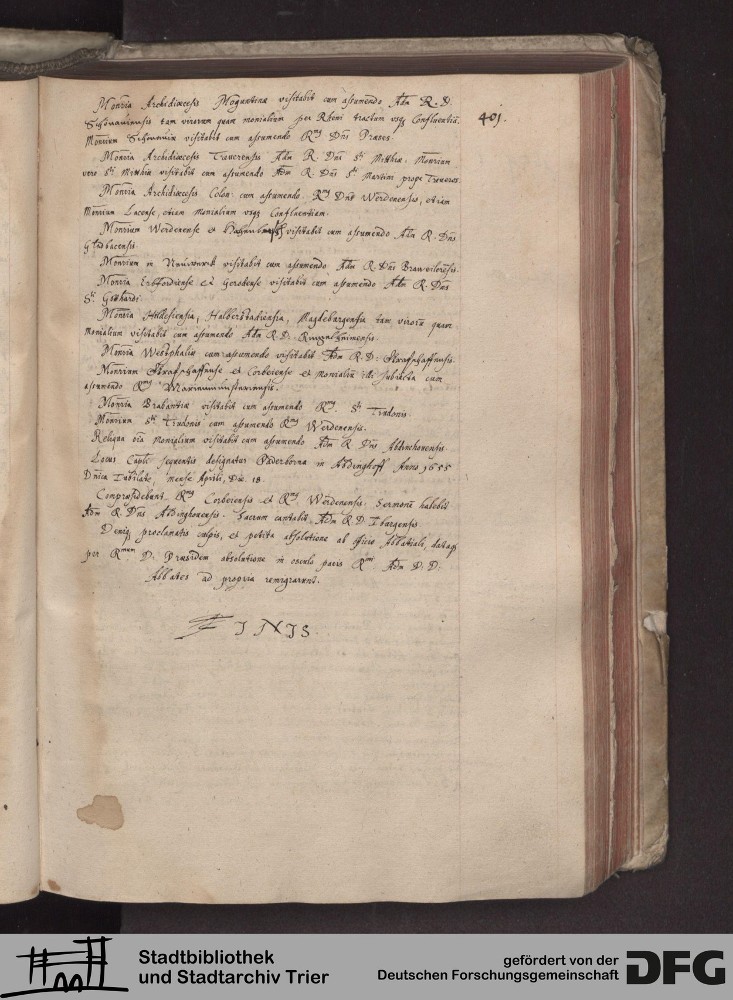 Monria Archidiœcesis Moguntinæ visitabit cum assumendo Adm R. D.
Schönauiensis tam virorum quam monialium per Rheni tractum vsq Confluentiā.
401.
Monrium Schönauiæ visitabit cum assumendo Rmg Dnš Præses.
Monria Archidiœcesis Treuerensis Adm R. Dnš Sti Matthiæ. Monrium
vero Sti Matthiæ visitabit cum assumendo Adm R. Dnš Sti Martini prope Treueros.
Monria Archidiœcesis Colon: cum assumendo Rmg Dnš Werdenensis, etiam
Monrium Lacense, etiam Monialium vsq Confluentiam.
Monrium Werdenense et visitabit cum assumendo Adm R. Dnš
Gladbacensis.
Monrium in visitabit cum assumendo Adm R. Dnš Brauvilerēsis.
Monria Erbfordiense et Gerodense visitabit cum assumendo Adm R. Dnš
Sti Gothardi.
Monria Hildesiensia, Halberstadiensia, Magdeburgensia tam virorū quam
Monialium visitabit cum assumendo Adm R. D. Ringelheimensis.
Monria Westphaliæ cum assumendo visitabit Adm R. D: Strafschaffensis.
Monrium Strafschaffense et Corbeiense et Monialiū illi subiecta cum
assumendo Rmg Marienmünsteriensis.
Monria Brabantiæ visitabit cum assumendo Rmg Sti Trudonis
Monrium Sti Trudonis cum assumendo Rmg Werdenensis.
Reliqua oīa Monialium visitabit cum assumendo Adm R Dnš Abdinchouensis.
Locus Capli sequentis designatus Paderborna in Abdinghoff Anno 1655
Dnīca Iubilate, mense Aprili, Die 18.
Compræsidebunt Rmg Corbeiensis et Rmg Werdenensis. Sermonē habebit
Adm R. Dnš Abdinghouensis. Sacrum cantabit Adm R D Iburgensis
Deniq proclamatis culpis, et petita absolutione ab officio Abbatiali, dataq
per Rmum D: Præsidem absolutione in osculo pacis Rmi Adm D. D:
Abbates ad propria remigrarunt.
FINIS
Stadtbibliothek
und Stadtarchiv Trier
gefördert von der
Deutschen Forschungsgemeinschaft
DFG